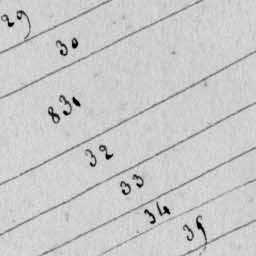 29
30
831
32
33
34
35